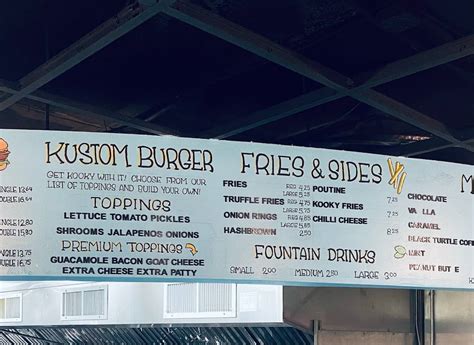 KUSTOM BURGER
GET KOOKY WITH IT! CHOOSE FROM OUR
LIST OF TOPPINGS AND BUILD YOUR OWN!
TOPPINGS
LETTUCE TOMATO PICKLES
SHROOMS JALAPENOS ONIONS
PREMIUM TOPPINGS
GUACAMOLE BACON GOAT CHEESE
EXTRA CHEESE EXTRA PATTY
FRIES & SIDES
FRIES REG 4.25
LARGE 5.25
TRUFFLE FRIES REG 4.75
LARGE 5.75
ONION RINGS
HASHBROWN 2.50
POUTINE
KOOKY FRIES 7.25
CHILI CHEESE
FOUNTAIN DRINKS
SMALL 2.00 MEDIUM 2.50 LARGE 3.00
CHOCOLATE
VA LLA
CARAMEL
BLACK TURTLE
MINT
PEANUT BUT E